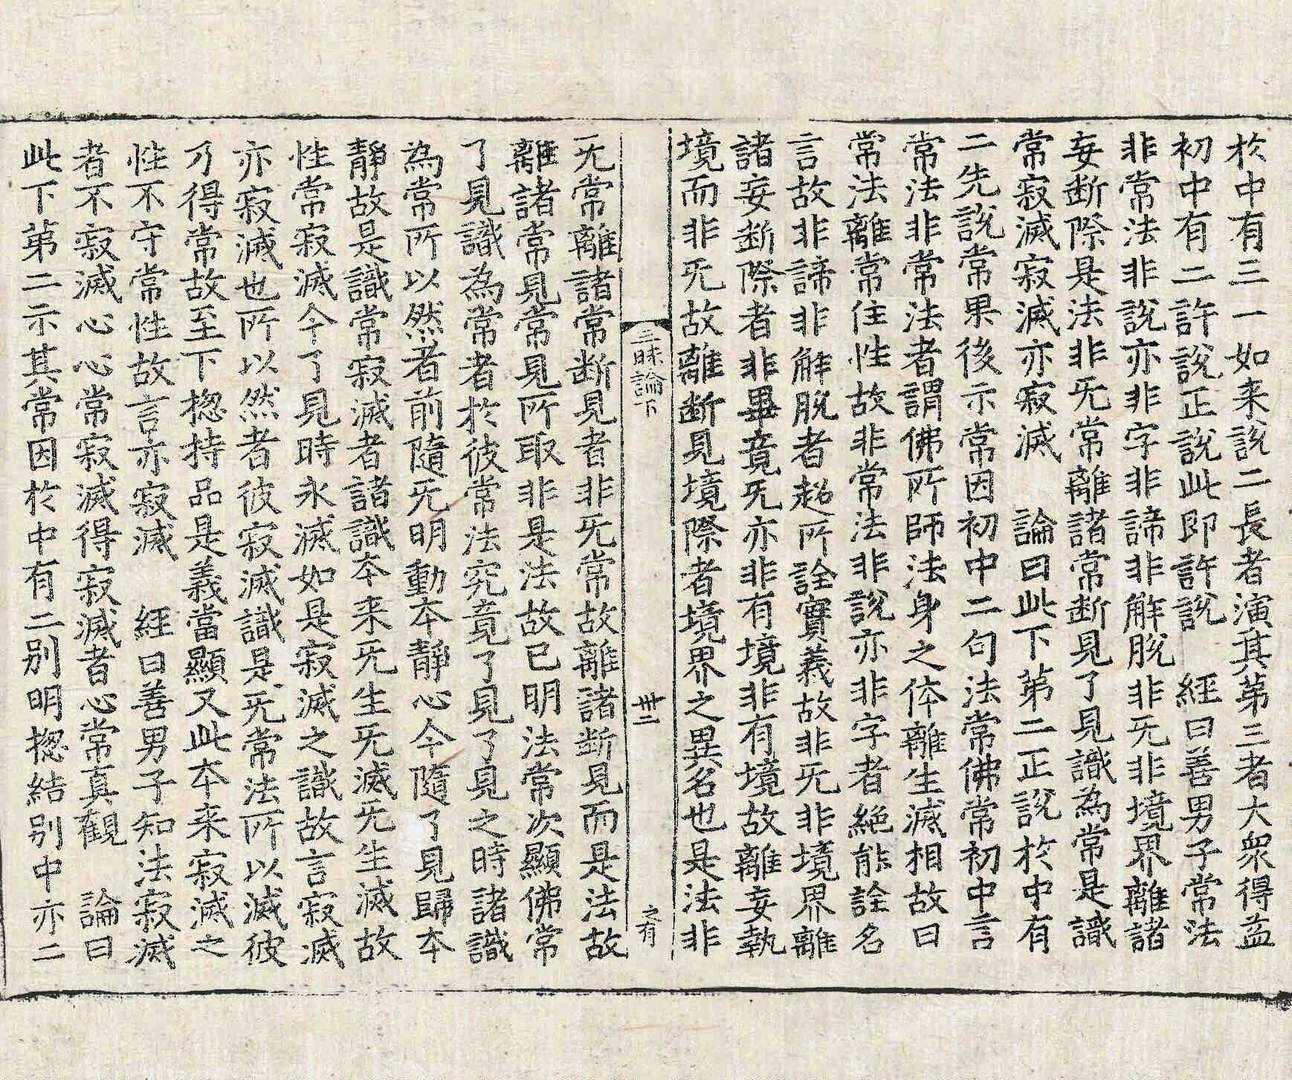 於中有三一如来說二長者演其第三者大衆得益
初中有二許說正說此即許說　經曰善男子常法
非常法非說亦非字非諦非解脫非旡非境界離諸
妄断際是法非旡常離諸常断見了見識為常是識
常寂滅寂滅亦寂滅　論曰此下第二正說於中有
二先說常果後示常因初中二句法常佛常初中言
常法非常法者謂佛所師法身之体離生滅相故曰
常法離常住性故非常法非說亦非字者絶能詮名
言故非諦非解脫者超所詮實義故非旡非境界離
諸妄断際者非畢竟旡亦非有境非有境故離妄執
境而非旡故離断見境際者境界之異名也是法非
三昧論下
卅二
之有
旡常離諸常断見者非旡常故離諸断見而是法故
離諸常見常見所取非是法故已明法常次顯佛常
了見識為常者於彼常法究竟了見了見之時諸識
為常所以然者前隨旡明動本靜心今隨了見歸本
靜故是識常寂滅者諸識本来旡生旡滅旡生滅故
性常寂滅今了見時永滅如是寂滅之識故言寂滅
亦寂滅也所以然者彼寂滅識是旡常法所以滅彼
乃得常故至下揔持品是義當顯又此本来寂滅之
性不守常性故言亦寂滅　經曰善男子知法寂滅
者不寂滅心心常寂滅得寂滅者心常真觀　論曰
此下第二示其常因於中有二别明揔結别中亦二